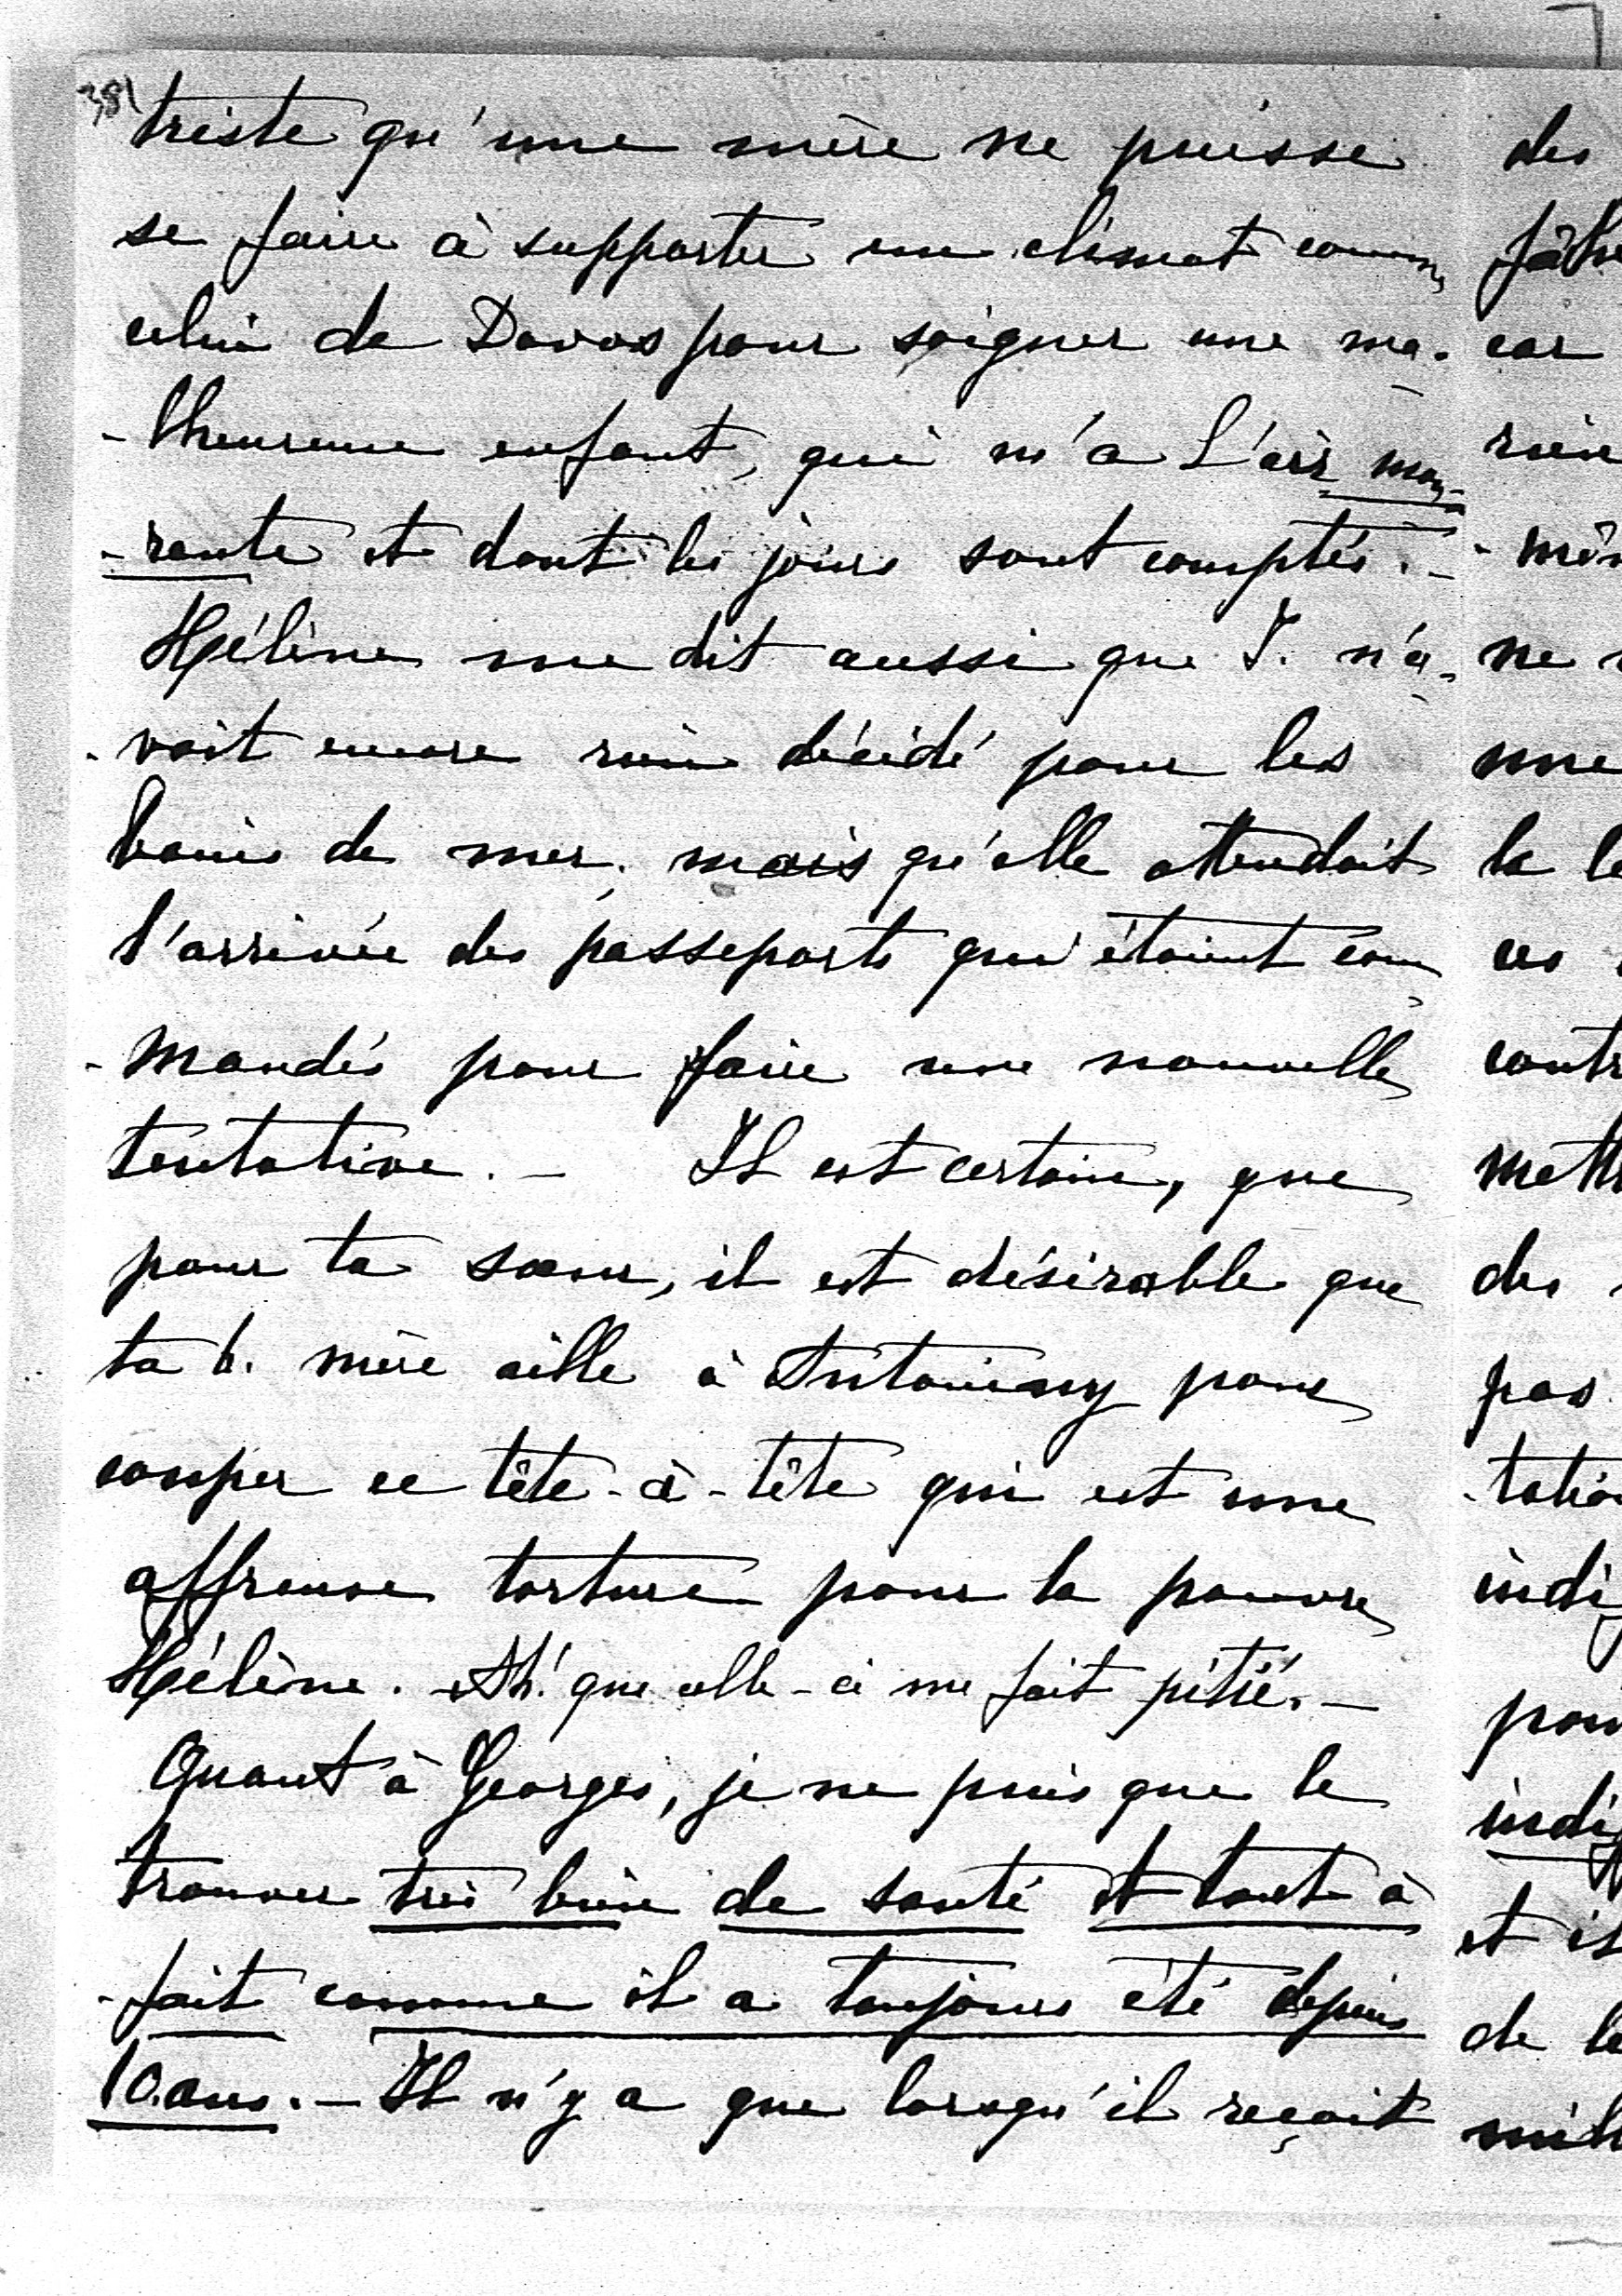 381
triste qu'une mère ne puisse
se faire à supporter un climat comme
celui de Davos pour soigner une ma-
-lheureuse enfant, qui m'a l'air mou-
-rante et dont les jours sont comptés. -
Hélène me dit aussi que J. n'a-
-vait encore rien décidé pour les
bains de mer, mais qu'elle attendait
l'arrivée des passeports qui étaient com-
-mandés pour faire une nouvelle
tentative. - Il est certain, que
pour ta sœur, il est désirable que
ta b. mère aille à Antoniny pour
couper ce tête-à-tête qui est une
affreuse torture pour la pauvre
Hélène. - Ah! que celle-ci me fait pitié. -
Quant à Georges, je ne puis que le
trouver très bien de santé et tout à
-fait comme il a toujours été depuis
10 ans. - Il n'y a que lorsqu'il reçoit
des
car
rien
ne
une
la
ces
des
pas
et
de